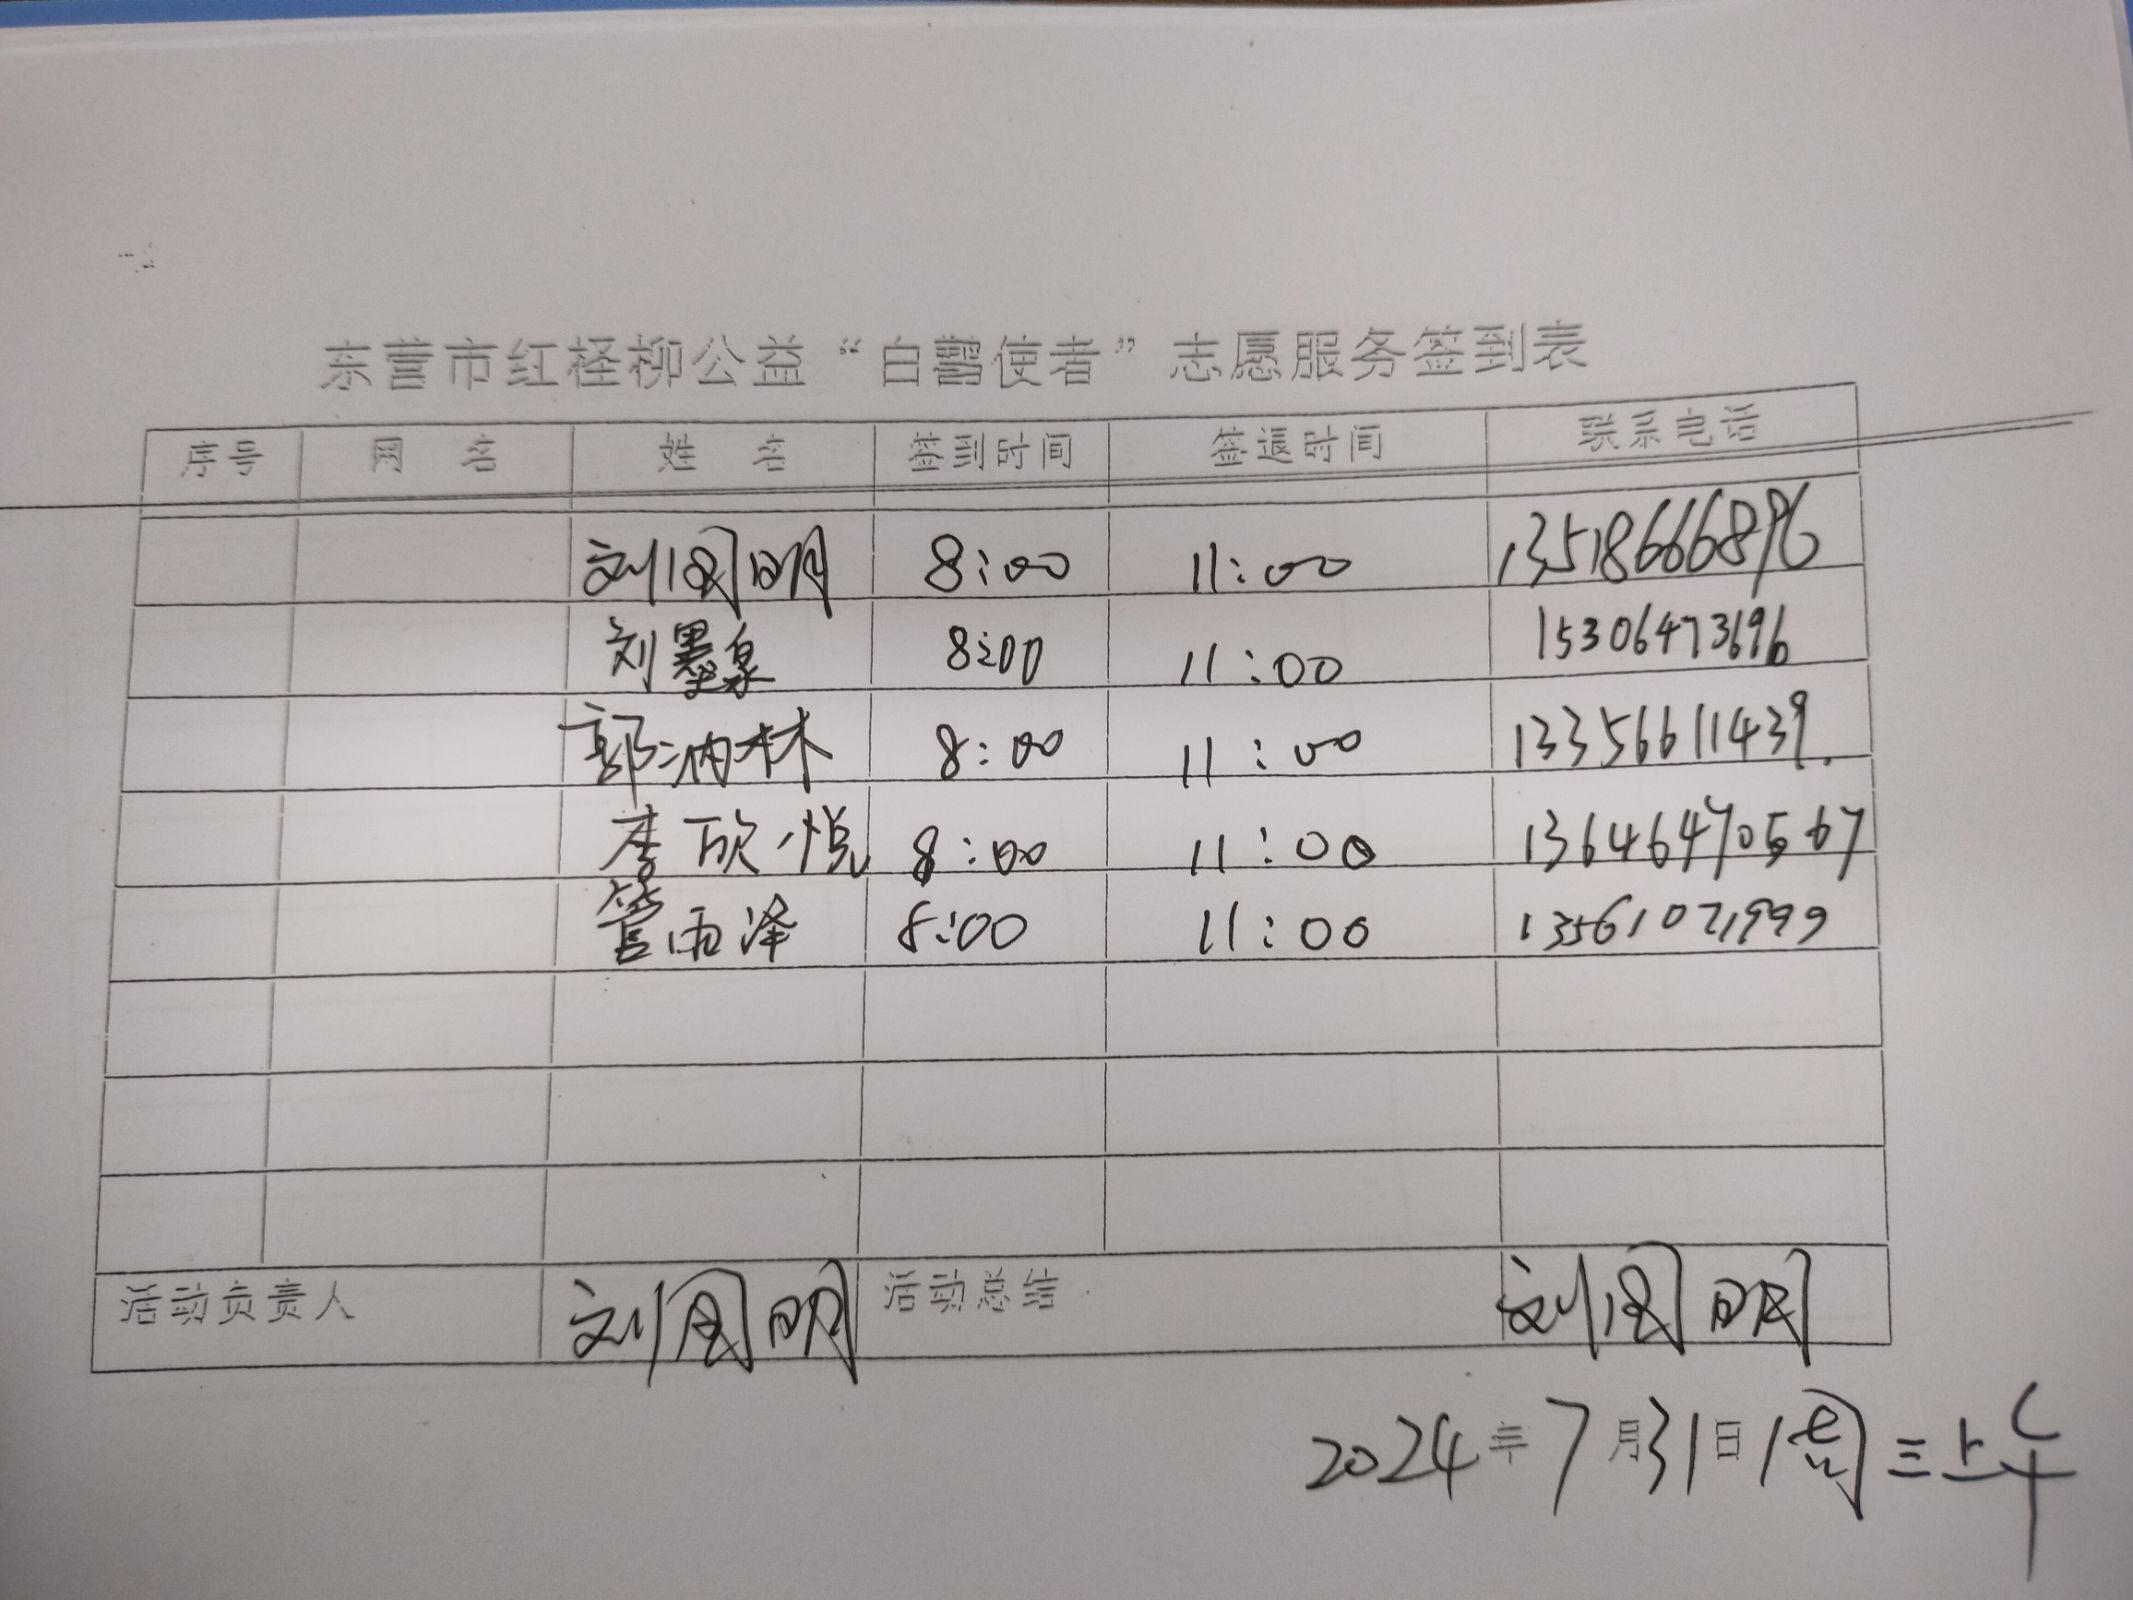 东营市红柽柳公益“白鹭使者”志愿服务签到表
序号 网 名 姓 名 签到时间 签退时间 联系电话
刘国明 8:00 11:00 13518666896
刘墨泉 8:00 11:00 15306473696
郭沩林 8:00 11:00 13356611439.
李欣悦 8:00 11:00 13646470567
管雨泽 8:00 11:00 13561071999
活动负责人 刘国明 活动总结 刘国明
2024年7月31日 周三上午